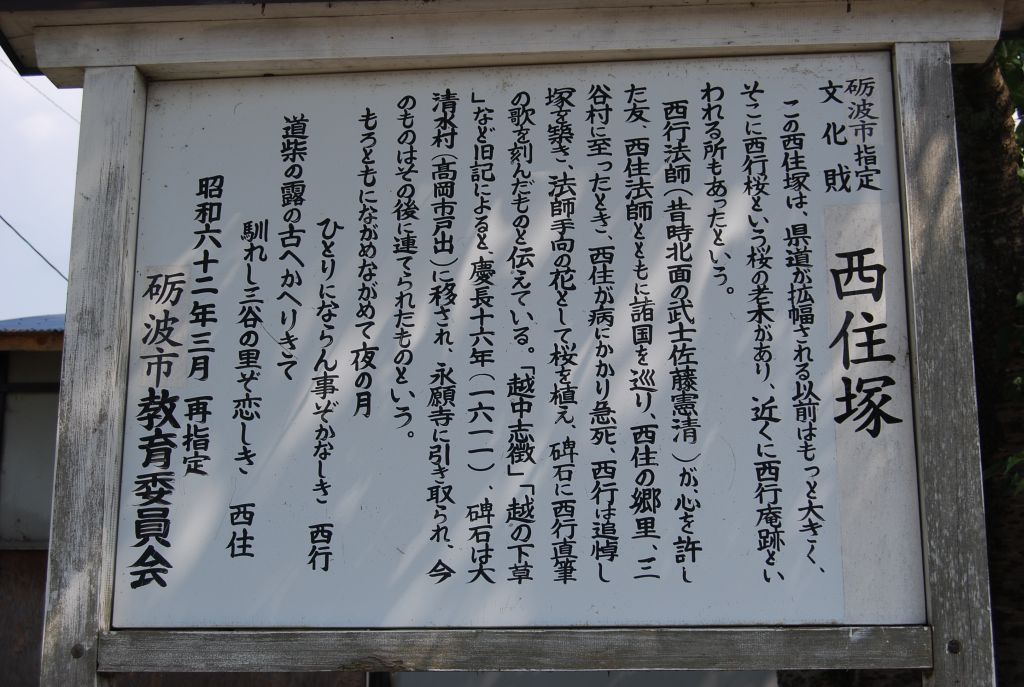 砺波市指定
文化財
西住塚
この西住塚は、県道が拡幅される以前はもっと大きく、
そこに西行桜という桜の老木があり、近くに西行庵跡とい
われる所もあったという。
西行法師（昔時北面の武士佐藤憲清）が心を許し
た友、西住法師とともに諸国を巡り、西住の郷里、三
谷村に至ったとき、西住が病にかかり急死、西行は追悼し
塚を築き、法師手向の花として桜を植え、碑石に西行直筆
の歌を刻んだものと伝えている。「越中志徴」「越の下草
」など旧記によると、慶長十六年（一六一一）、碑石は大
清水村（高岡市戸出）に移され、永願寺に引き取られ、今
のものはその後に建てられたものという。
もろともにながめながめて夜の月
ひとりにならん事ぞかなしき 西行
道柴の露の古へかへりきて
馴れし三谷の里ぞ恋しき 西住
昭和六十二年三月 再指定
砺波市教育委員会